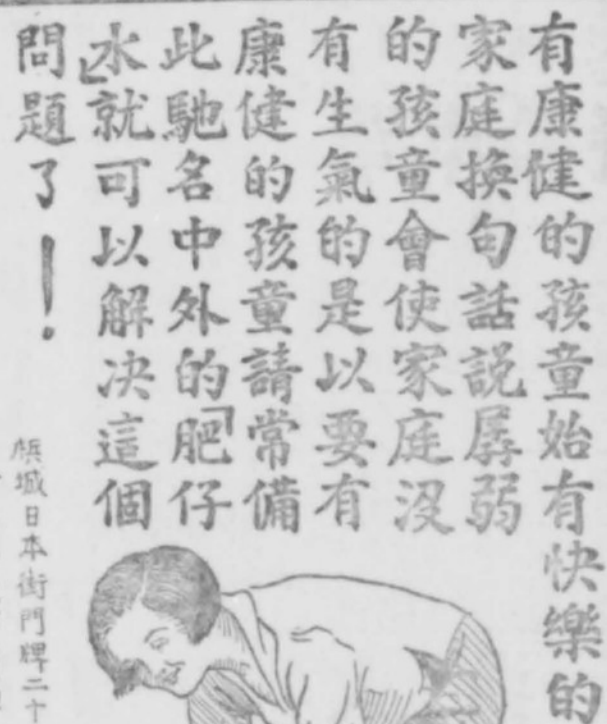 有康健的孩童始有快樂的
家庭換句話説孱弱
的孩童會使家庭沒
有生氣的是以要有
康健的孩童請常備
此馳名中外的「肥仔
水」就可以解决這個
問題了！
檳城日本街門牌二十